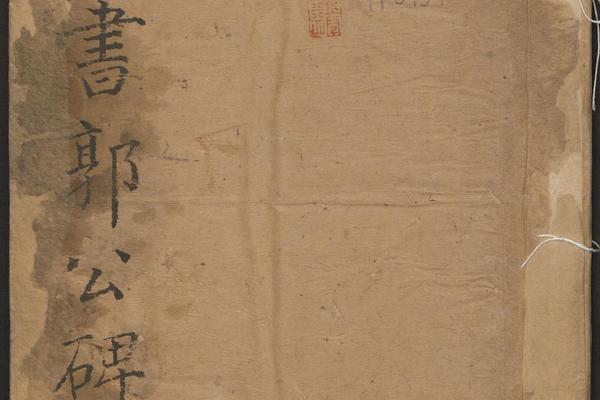 書郭公碑